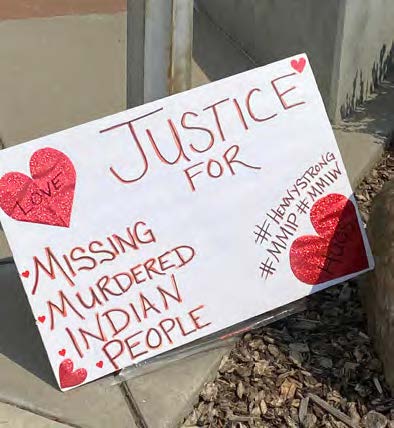 JUSTICE
FOR
LOVE
MISSING
MURDERED
INDIAN
PEOPLE
#HENNYSTRONG
#MMIP #MMIW
HUGS